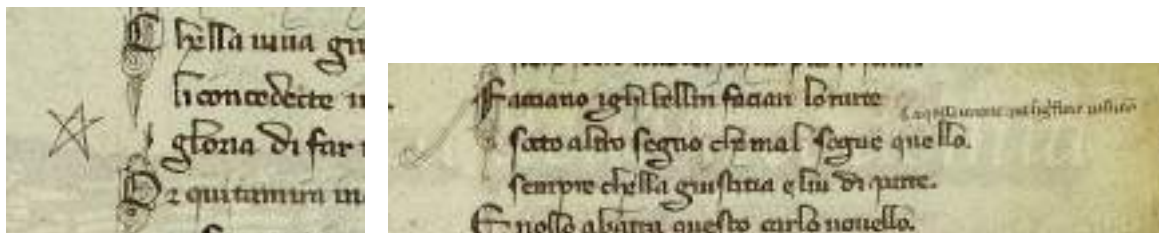 Chella uiua giu
li concedette
gloria di far
Or quitamira in
Faciano ighibellin facian lorarte
sotto altro segno che mal segue quello.
sempre chella giustitia e lui di parte.
E nollo abatta questo carlo nouello.